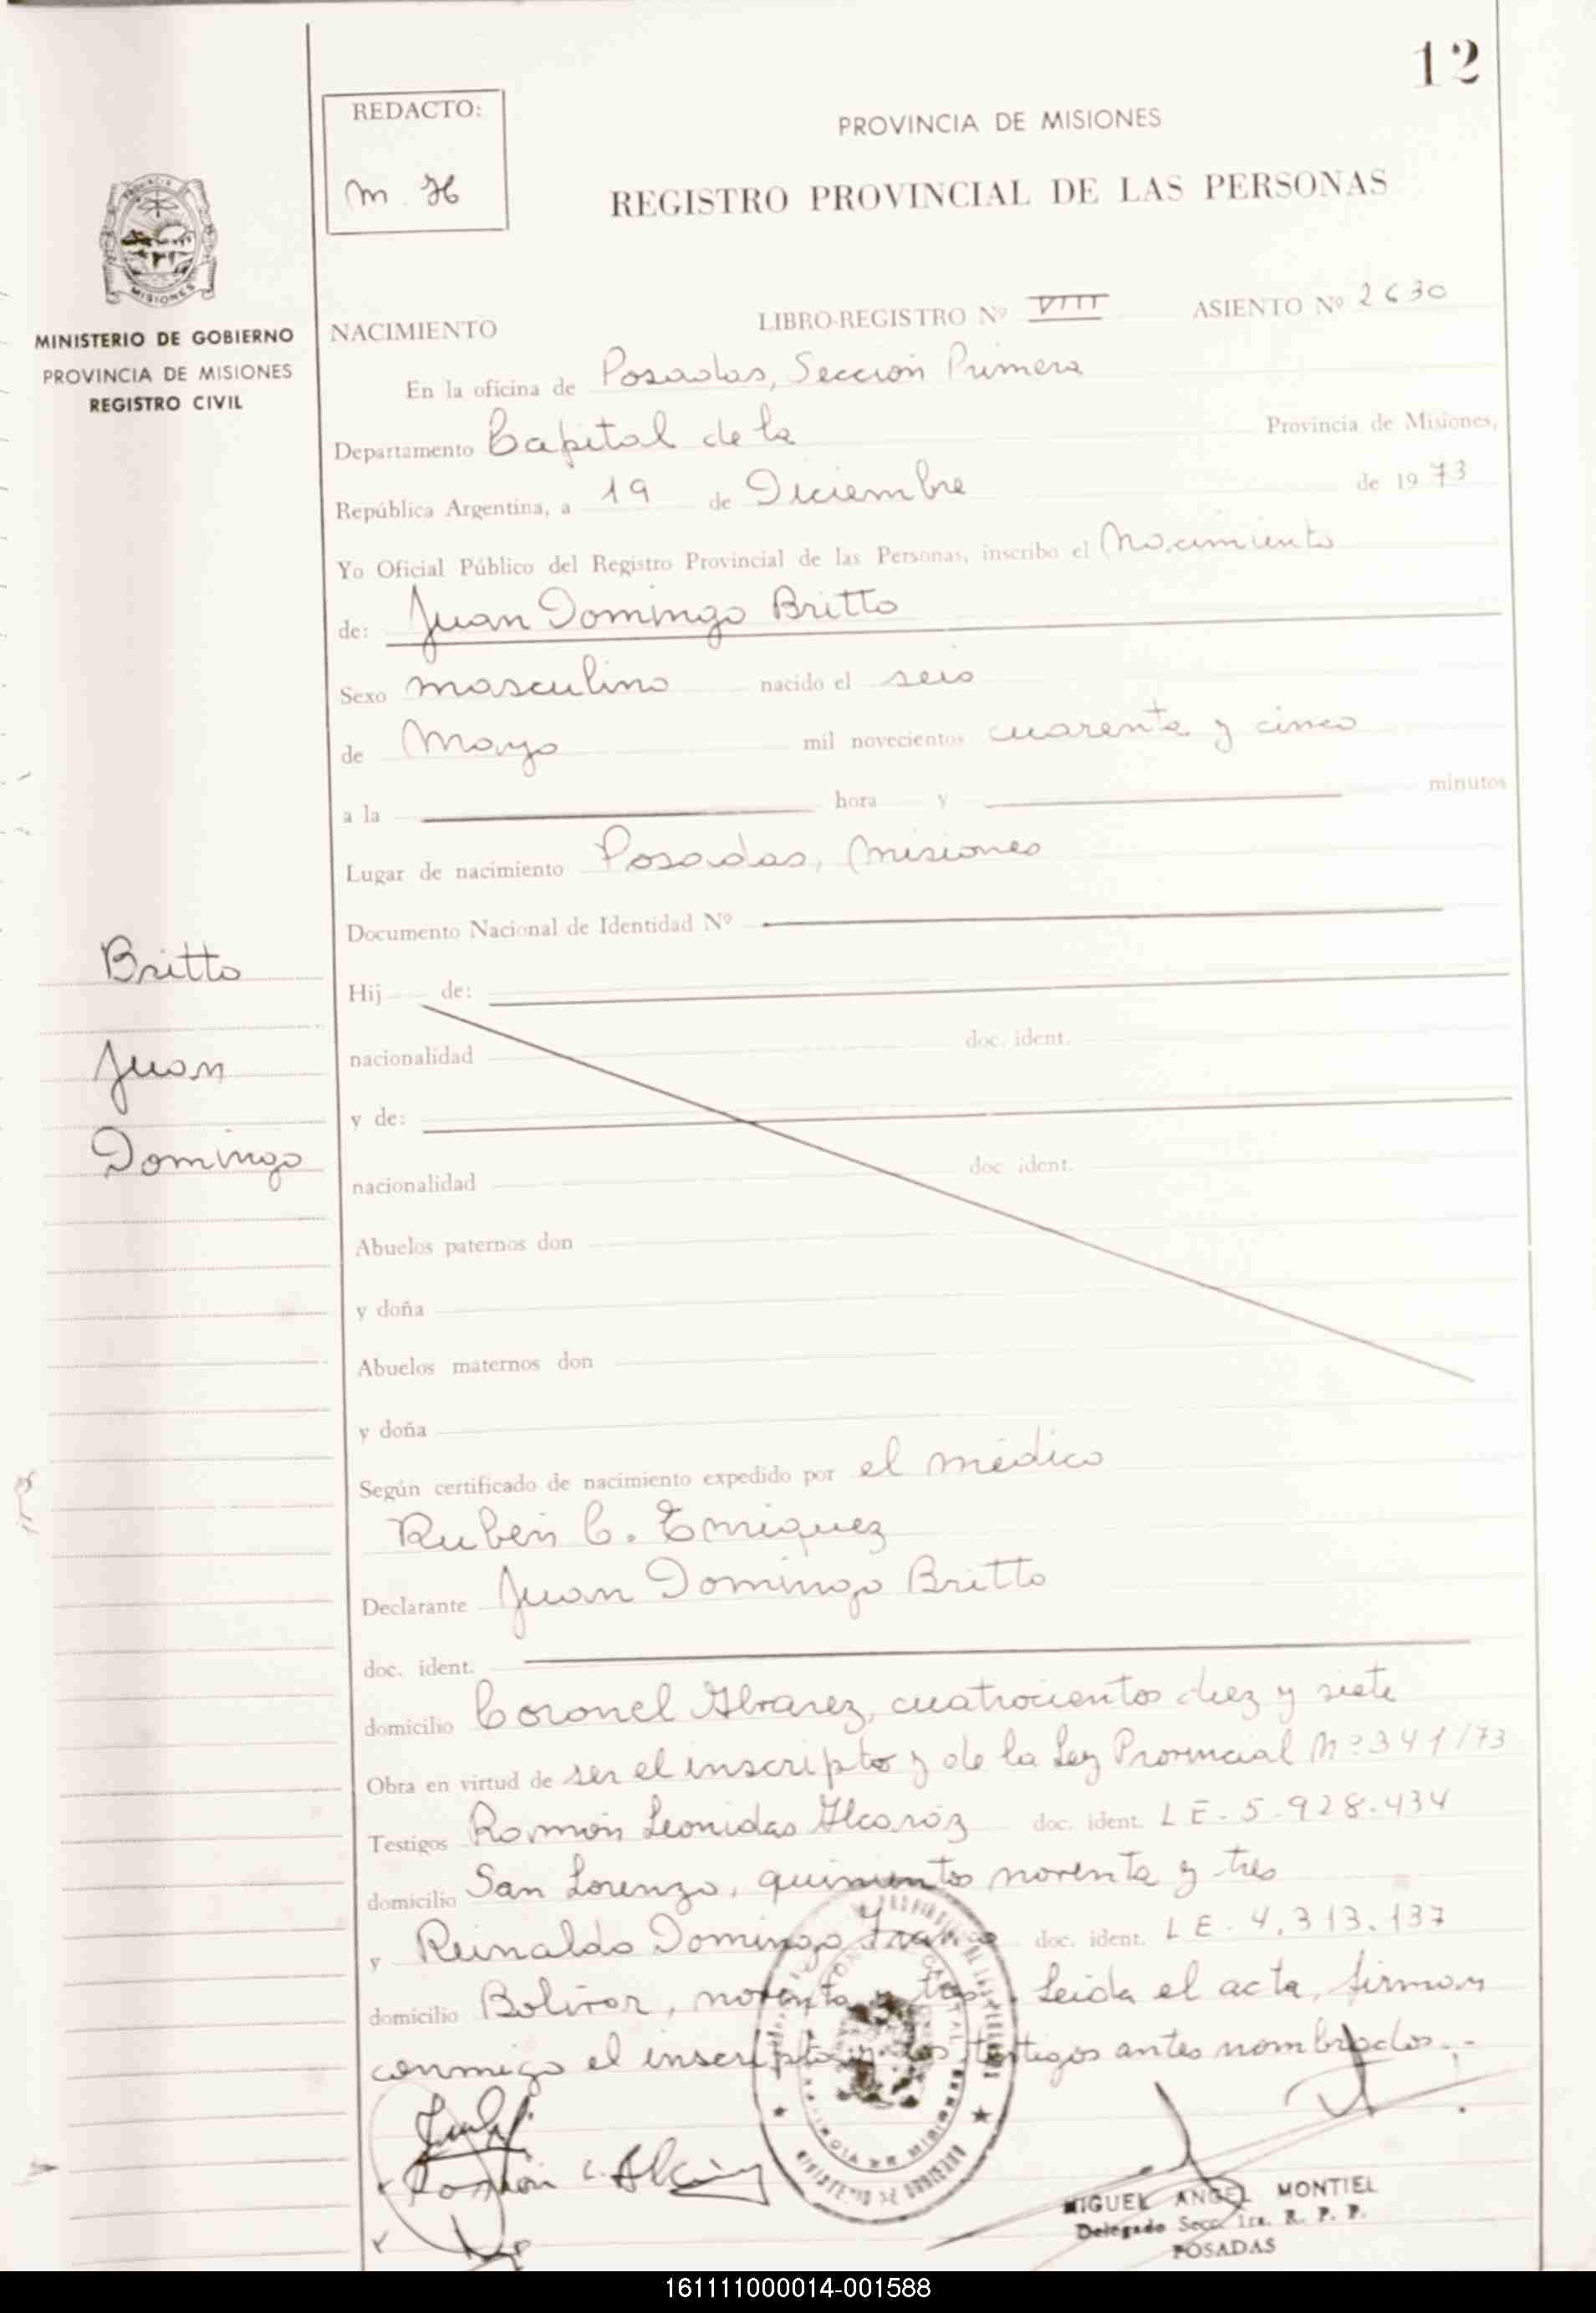 12
REDACTO:
M. H
PROVINCIA DE MISIONES
REGISTRO PROVINCIAL DE LAS PERSONAS
MISIONES
MINISTERIO DE GOBIERNO
PROVINCIA DE MISIONES
REGISTRO CIVIL
NACIMIENTO LIBRO-REGISTRO Nº VIII ASIENTO Nº 2630
En la oficina de Posadas, Sección Primera
Departamento Capital de la Provincia de Misiones,
República Argentina, a 19 de Diciembre de 1973
Yo Oficial Público del Registro Provincial de las Personas, inscribo el Nacimiento
de: Juan Domingo Britto
Sexo masculino nacido el seis
de Mayo mil novecientos cuarenta y cinco
a la hora y minutos
Lugar de nacimiento Posadas, Misiones
Documento Nacional de Identidad Nº
Britto
Juan
Domingo
Hij de:
nacionalidad doc. ident.
y de:
nacionalidad doc ident.
Abuelos paternos don
y doña
Abuelos maternos don
y doña
Según certificado de nacimiento expedido por el médico
Rubén C. Enriquez
Declarante Juan Domingo Britto
doc. ident.
domicilio Coronel Alvarez, cuatrocientos diez y siete
Obra en virtud de ser el inscripto y de la Ley Provincial Nº 341/73
Testigos Ramón Leonidas Alcaráz doc. ident. LE-5-928-434
domicilio San Lorenzo, quinientos noventa y tres
y Reinaldo Domingo doc. ident. LE-4.313.137
domicilio Bolivar, noventa y Leida el acta, firman
conmigo el inscripto y los testigos antes nombrados.-
Ramón L. Alcaráz
MIGUEL ANGEL MONTIEL
Delegado Secc. 1ra. R. P. P.
POSADAS
161111000014-001588